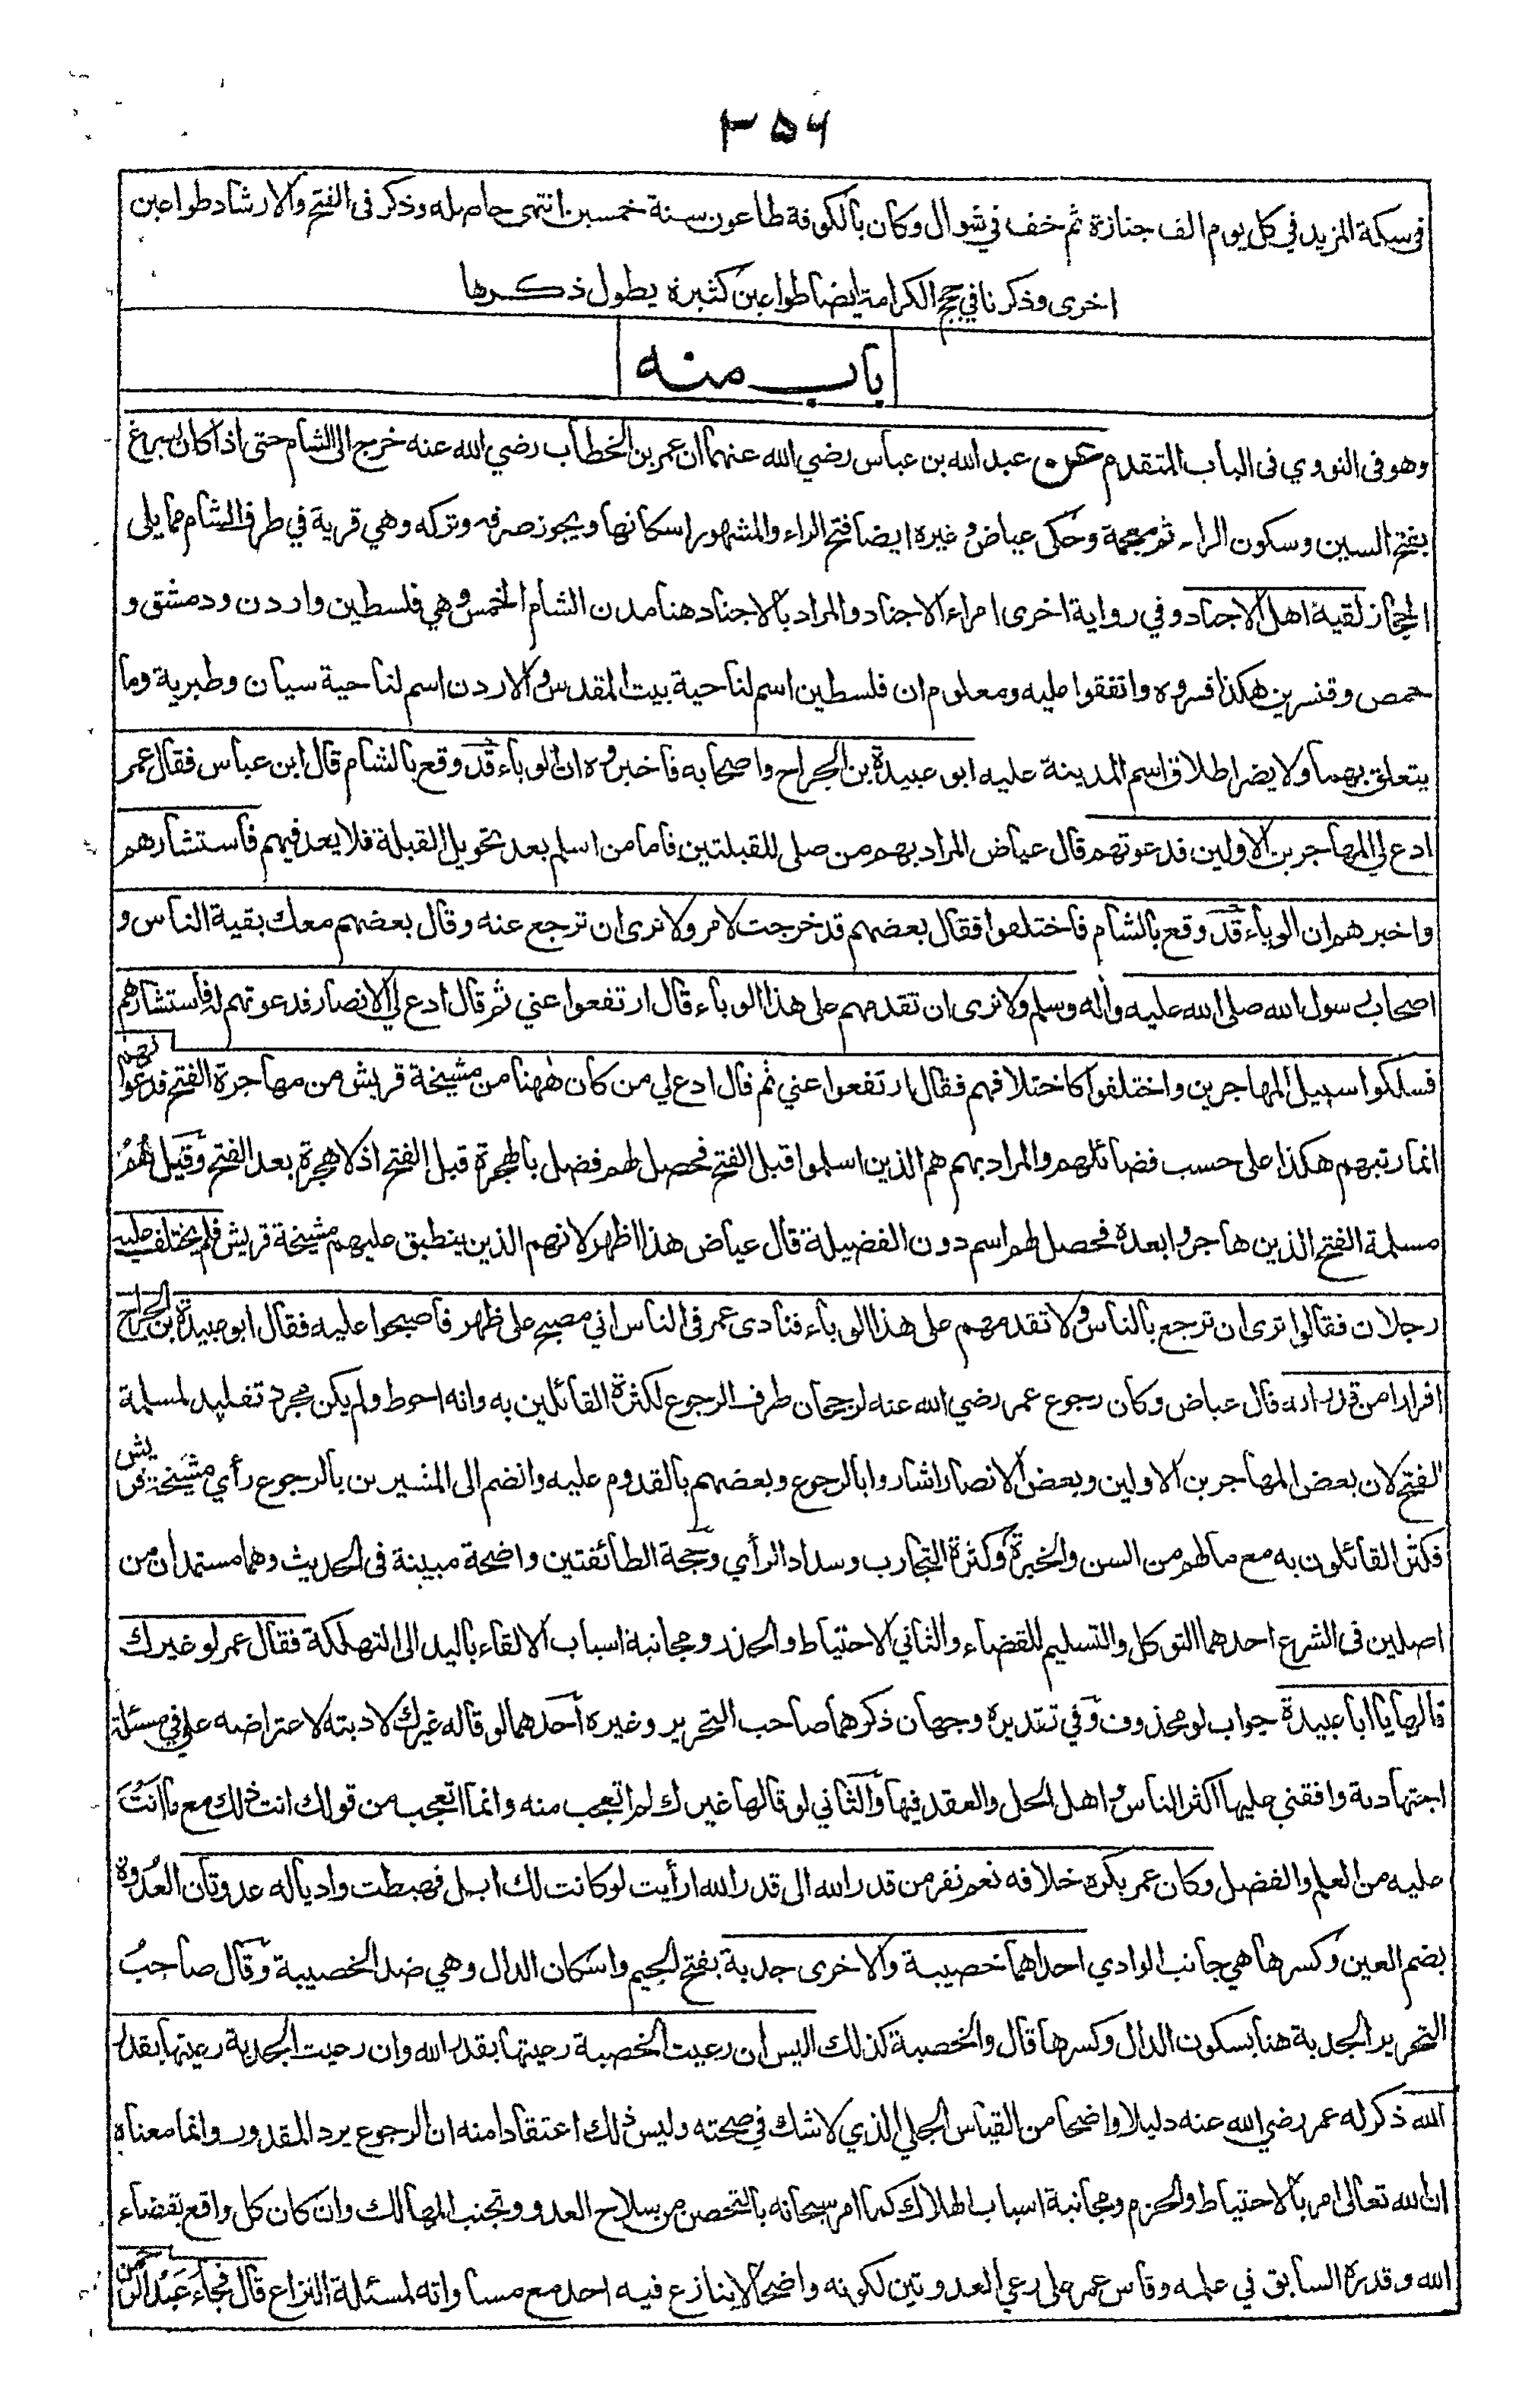 ٣٥٦
في سكة المزيد في كل يوم الف جنازة ثم خف في شوال وكان بالكوفة طاعون سنة خمسين انتهى حاصله وذكر في الفتح والارشاد طواعين
اخرى وذكرنا في حجج الكرامة ايضا طواعين كثيرة يطول ذكرها
باب منه
وهو في النووي في الباب المتقدم عن عبد الله بن عباس رضي الله عنهما ان عمر بن الخطاب رضي الله عنه خرج الى الشام حتى اذا كان بسرغ
بفتح السين وسكون الراء ثم معجمة وحكى عياض وغيره ايضا فتح الراء والمشهور اسكانها ويجوز صرفه وتركه وهي قرية في طرف الشام مما يلى
الحجاز لقيه اهل الاجناد وفي رواية اخرى امراء الاجناد والمراد بالاجناد هنا مدن الشام الخمس وهي فلسطين واردن ودمشق و
حمص وقنسرين هكذا فسروه واتفقوا عليه ومعلوم ان فلسطين اسم لناحية بيت المقدس والاردن اسم لناحية سيان وطبرية وما
يتعلق بهما ولا يضر اطلاق اسم المدينة عليه ابو عبيدة بن الجراح واصحابه فاخبروه ان الوباء قد وقع بالشام قال ابن عباس فقال عمر
ادع لي المهاجرين الاولين فدعوتهم قال عياض المراد بهم من صلى للقبلتين فاما من اسلم بعد تحويل القبلة فلا يعد فيهم فاستشارهم
واخبرهم ان الوباء قد وقع بالشام فاختلفوا فقال بعضهم قد خرجت لامر ولا نرى ان ترجع عنه وقال بعضهم معك بقية الناس و
اصحاب رسول الله صلى الله عليه واله وسلم ولا نرى ان تقدمهم على هذا الوباء قال ارتفعوا عني ثم قال ادع لي الانصار فدعوتهم له فاستشارهم
فسلكوا سبيل المهاجرين واختلفوا كاختلافهم فقال ارتفعوا عني ثم قال ادع لي من كان ههنا من مشيخة قريش من مهاجرة الفتح فدعوتهم
انما رتبهم هكذا على حسب فضائلهم والمراد بهم هم الذين اسلموا قبل الفتح فحصل لهم فضل بالهجرة قبل الفتح اذ لا هجرة بعد الفتح وقيل هم
مسلمة الفتح الذين هاجروا بعده فحصل لهم اسم دون الفضيلة قال عياض هذا اظهر لانهم الذين ينطبق عليهم مشيخة قريش فلم يختلف عليه
رجلان فقالوا نرى ان ترجع بالناس ولا تقدمهم على هذا الوباء فنادى عمر في الناس اني مصبح على ظهر فاصبحوا عليه فقال ابو عبيدة بن الجراح
افرارا من قدر الله قال عياض وكان رجوع عمر رضي الله عنه لرجحان طرف الرجوع لكثرة القائلين به وانه احوط ولم يكن مجرد تقليد لمسلمة
الفتح لان بعض المهاجرين الاولين وبعض الانصار اشاروا بالرجوع وبعضهم بالقدوم عليه وانضم الى المشيرين بالرجوع رأي مشيخة قريش
فكثر القائلون به مع ما لهم من السن والخبرة وكثرة التجارب وسداد الرأي وحجة الطائفتين واضحة مبينة في الحديث وهما مستمدان من
اصلين في الشرع احدهما التوكل والتسليم للقضاء والثاني الاحتياط والحذر ومجانبة اسباب الالقاء باليد الى التهلكة فقال عمر لو غيرك
قالها يا ابا عبيدة جواب لو محذوف وفي تقديره وجهان ذكرهما صاحب التحرير وغيره احدهما لو قاله غيرك لادبته لاعتراضه علي في مسئلة
اجتهادية وافقني عليها اكثر الناس واهل الحل والعقد فيها والثاني لو قالها غيرك لم اتعجب منه وانما اتعجب من قولك انت ذلك مع ما انت
عليه من العلم والفضل وكان عمر يكره خلافه نعم نفر من قدر الله الى قدر الله ارأيت لو كانت لك ابل فهبطت واديا له عدوتان العدوة
بضم العين وكسرها هي جانب الوادي احداهما خصيبة والاخرى جدبة بفتح الجيم واسكان الدال وهي ضد الخصيبة وقال صاحب
التحرير الجدبة هنا بسكون الدال وكسرها قال والخصبة كذلك اليس ان رعيت الخصبة رعيتها بقدر الله وان رعيت الجدبة رعيتها بقدر
الله ذكر له عمر رضي الله عنه دليلا واضحا من القياس الجلي الذي لا شك في صحته وليس ذلك اعتقادا منه ان الرجوع يرد المقدور وانما معناه
ان الله تعالى امر بالاحتياط والحزم ومجانبة اسباب الهلاك كما امر سبحانه بالتحصن من سلاح العدو وتجنب المهالك وان كان كل واقع بقضاء
الله وقدره السابق في علمه وقاس عمر على رعي العدوتين لكونه واضحا لا ينازع فيه احد مع مساواته لمسئلة النزاع قال فجاء عبد الرحمن